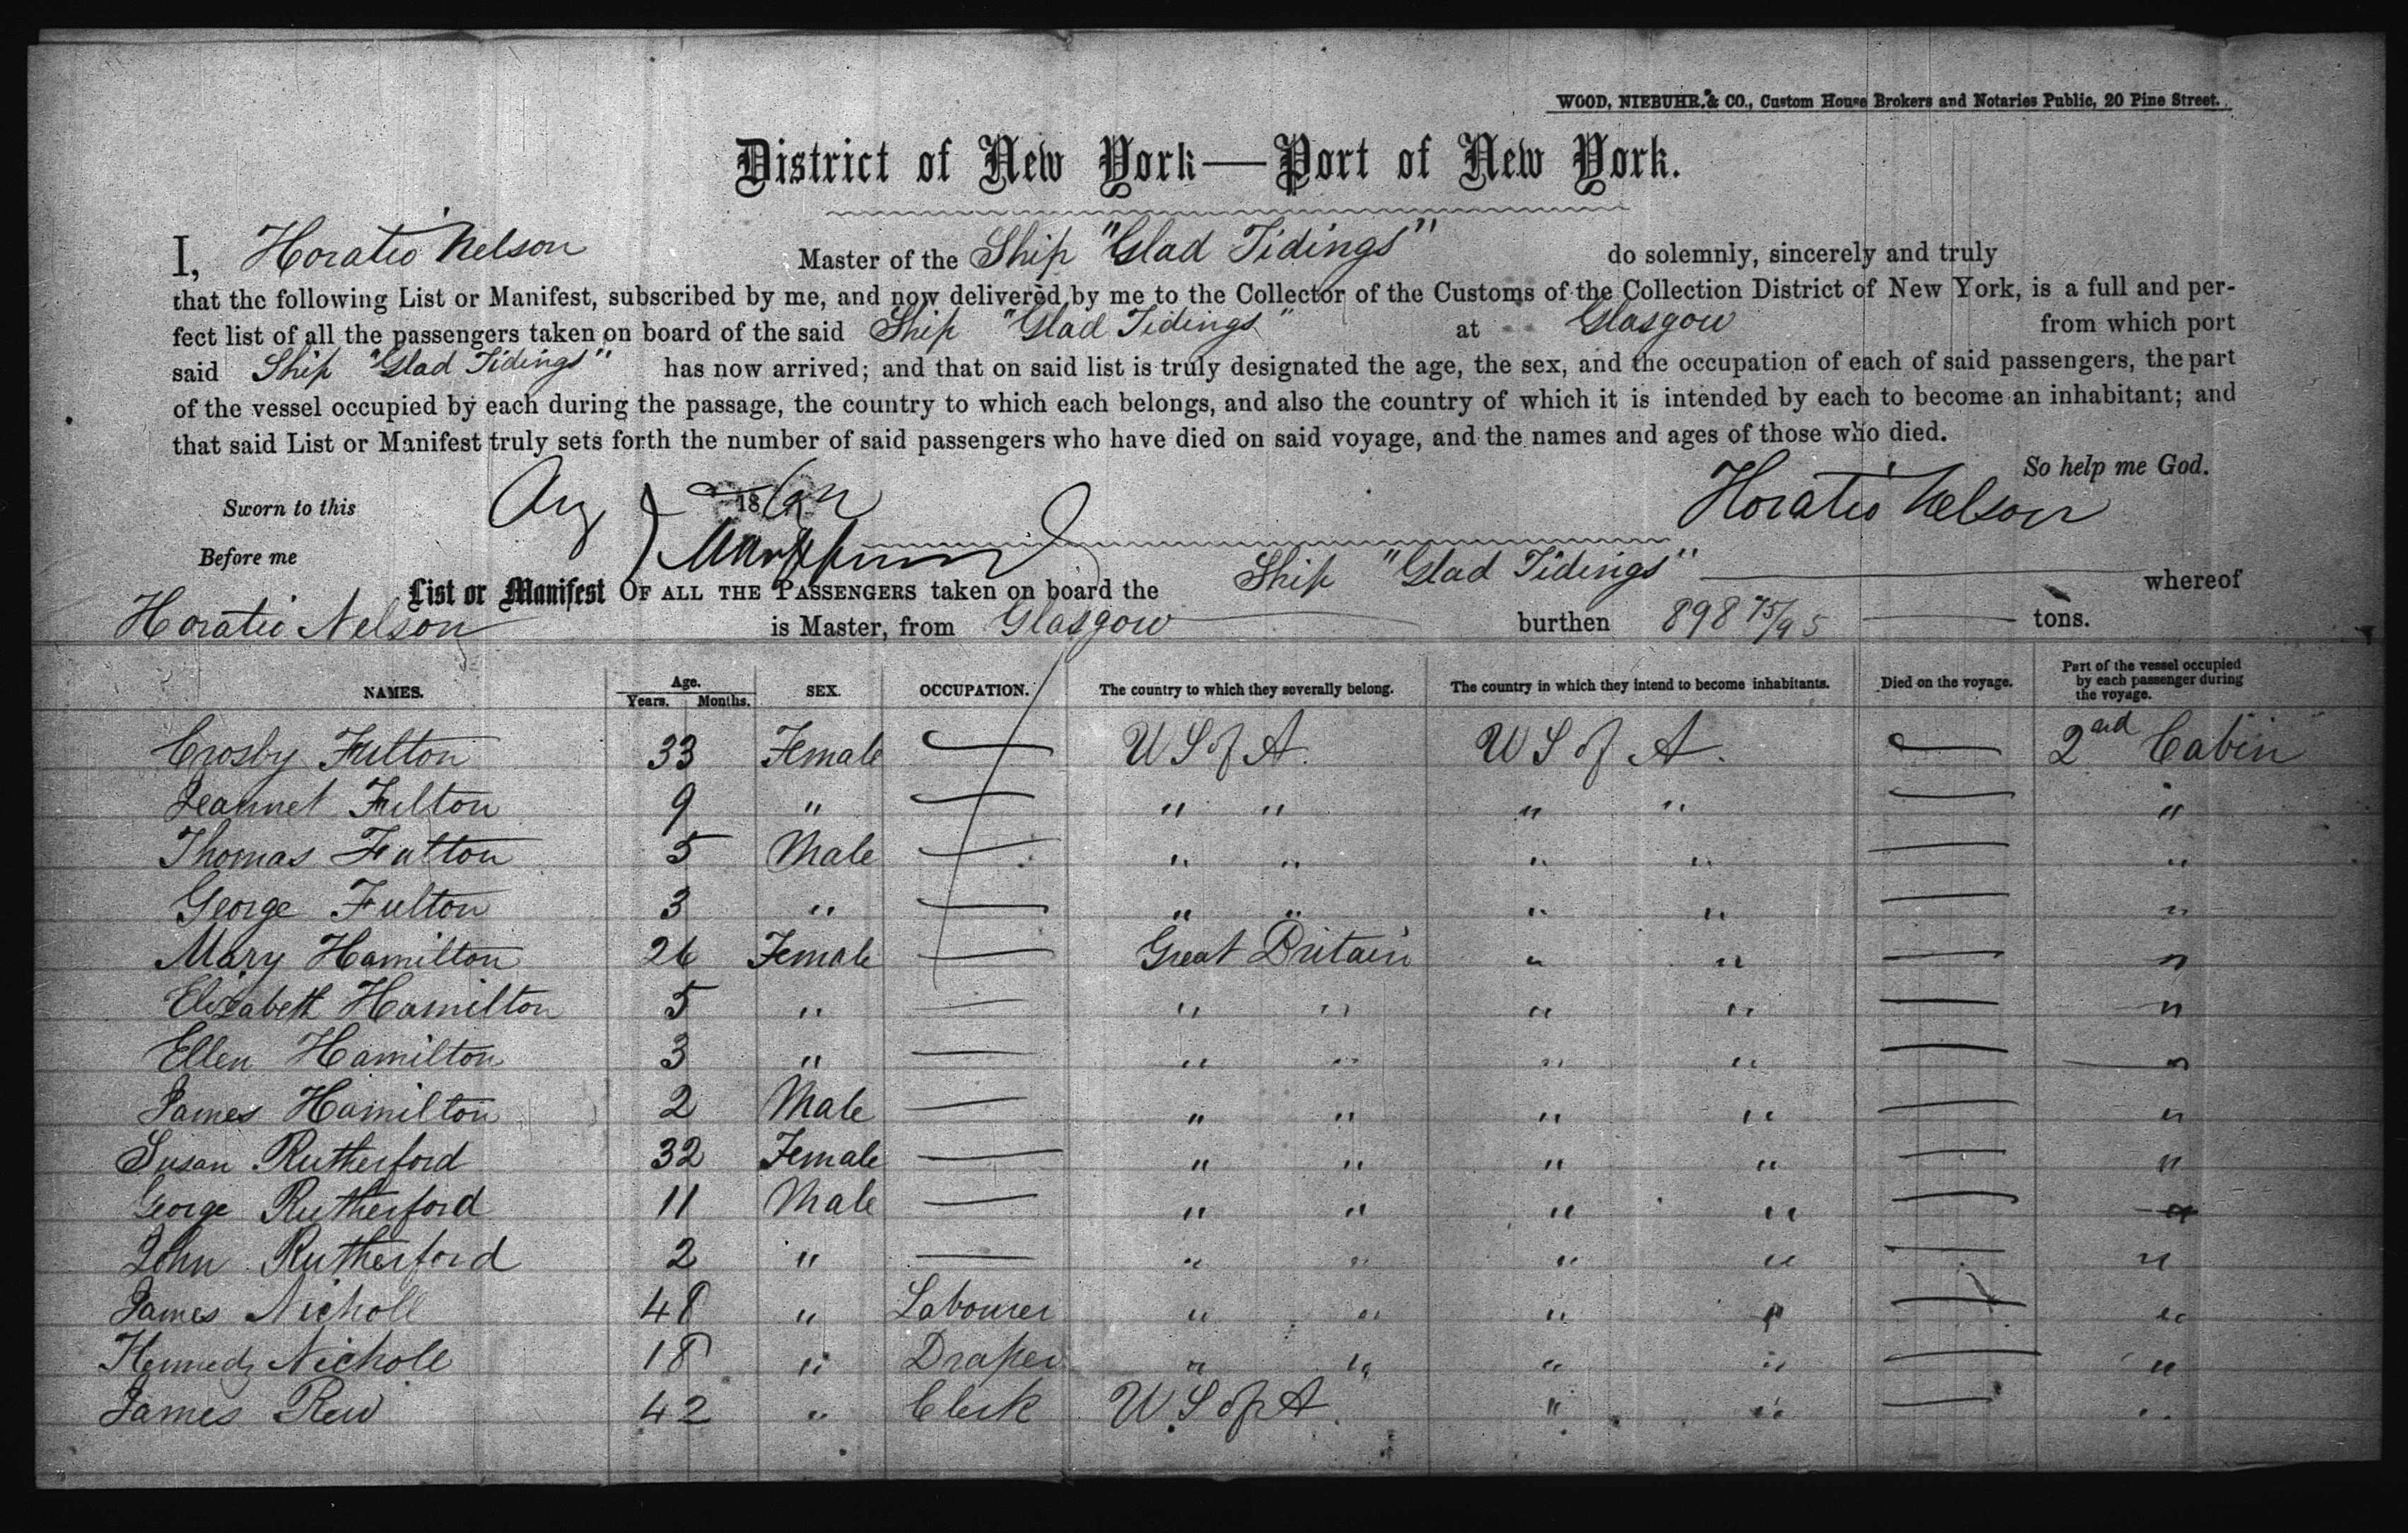 WOOD, NIEBUHR, & CO., Custom House Brokers and Notaries Public, 20 Pine Street.
District of New York—Port of New York.
I, Horatio Nelson Master of the Ship "Glad Tidings" do solemnly, sincerely and truly
that the following List or Manifest, subscribed by me, and now delivered by me to the Collector of the Customs of the Collection District of New York, is a full and per-
fect list of all the passengers taken on board of the said Ship "Glad Tidings" at Glasgow from which port
said Ship "Glad Tidings" has now arrived; and that on said list is truly designated the age, the sex, and the occupation of each of said passengers, the part
of the vessel occupied by each during the passage, the country to which each belongs, and also the country of which it is intended by each to become an inhabitant; and
that said List or Manifest truly sets forth the number of said passengers who have died on said voyage, and the names and ages of those who died.
So help me God.
Sworn to this Aug 18 Horatio Nelson
Before me
List or Manifest OF ALL THE PASSENGERS taken on board the Ship "Glad Tidings" — whereof
Horatio Nelson is Master, from Glasgow — burthen 898 75/95 — tons.
NAMES. Age. Years. Months. SEX. OCCUPATION. The country to which they severally belong. The country in which they intend to become inhabitants. Died on the voyage. Part of the vessel occupied by each passenger during the voyage.
Crosby Fulton 33 Female — U S of A. U S of A. — 2nd Cabin
Jeannet Fulton 9 " — " " " " — "
Thomas Fulton 5 Male — " " " " — "
George Fulton 3 " — " " " " — "
Mary Hamilton 26 Female — Great Britain " " — "
Elizabeth Hamilton 5 " — " " " " — "
Ellen Hamilton 3 " — " " " " — "
James Hamilton 2 Male — " " " " — "
Susan Rutherford 32 Female — " " " " — "
George Rutherford 11 Male — " " " " — "
John Rutherford 2 " — " " " " — "
James Nicholl 48 " Labourer " " " " — "
Kennedy Nicholl 18 " Draper " " " " — "
James Reid 42 " Clerk U S of A. " " — "